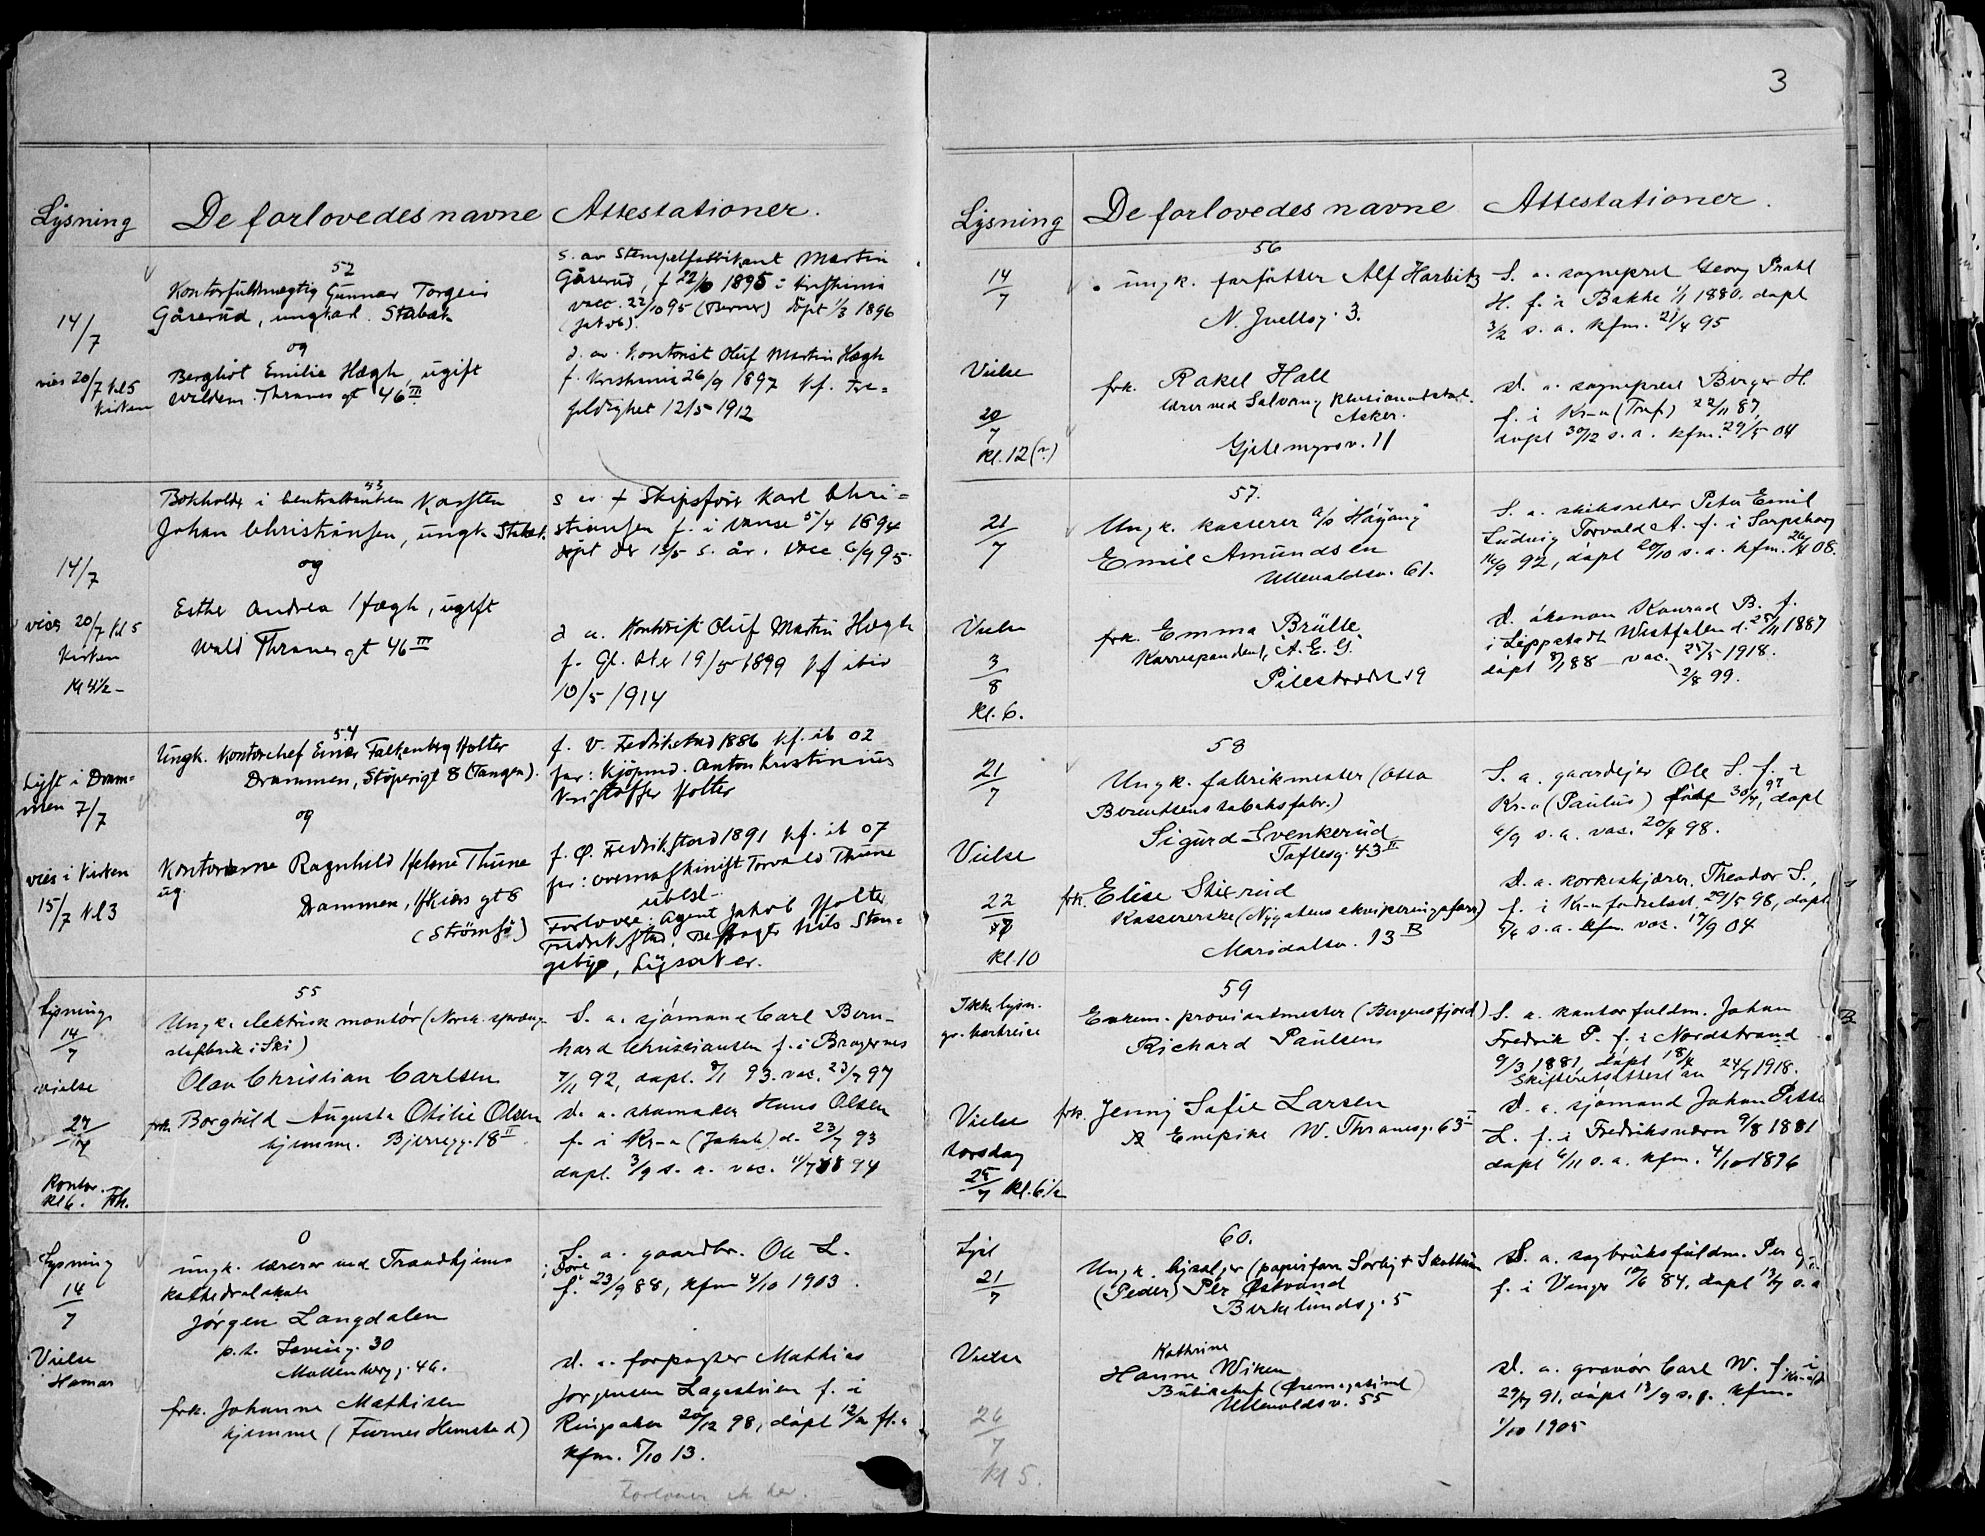 Lysning De forlovedes navne Attestationer.
52
14/7
vies 20/7 kl 5
kirken
Kontorfuldmægtig Gunnar Torgeir
Gåserud, ungkarl. Stabæk
og
Bergliot Emilie Hægh, ugift
Waldem. Thranes gt 46 III
s. av Stempelfabrikant Martin
Gåserud, f 1895 i Kristiania
vacc. 22/10 95 (Berner) døpt 1/3 1896
(Jakob).
d. av. Kontorist Oluf Martin Hægh
f. Kristiania 26/9 1897 kf. Tre-
foldighet 12/5 1912
53
14/7
vies 20/7 kl 5
kirken
kl 4 1/2
Bokholder i Centralbanken Karsten
Johan Christiansen, ungk. Stabæk.
og
Esther Andrea Hægh, ugift
Wald Thranes gt 46 III
s av + Skipsfører Karl Chri=
stiansen f. i Vanse 5/4 1894
døpt der 13/5 s. år. Vacc 6/9 95.
d a. Kontorist Oluf Martin Hægh
f. Gl. Aker 19/5 1899 kf ibid
10/5 1914
54
Lyst i Dram=
men 7/7
vies i kirken
15/7 kl 3
Ungk. kontorchef Einar Falkenberg Holter
Drammen, Støperigt 8 (Tangen).
og
Kontordame Ragnhild Helene Thune
ug.
Drammen, Kiærs gt 8
(Strømsø)
f. V. Fredrikstad 1886 kf. ib 02
far: Kjøpmd. Anton Kristinius
Kristoffer Holter
f. Ø. Fredrikstad 1891 kf. ib 07
far: overmaskinist Torvald Thune
ubesl.
Forlovere: Agent Jakob Holter
Fredrikstad. Nils Sten-
, Lysaker.
55
Lysning
14/7
vielse
27/7
kontor.
kl 6.
Ungk. elektrisk montør (Norsk spræng-
stoffabrik i Ski)
Olav Christian Carlsen
frk. Borghild Augusta Otilie Olsen
hjemme. Bjerregg. 18 II
S. a. sjømand Carl Bern-
hard Christiansen f. i Bragernes
7/11 92, døpt. 8/1 93. vac. 23/7 97
d. a. skomaker Hans Olsen
f. i Kr-a (Jakob) d. 23/7 93
døpt. 3/9 s. a. vac. 11/7 94
0
Lysning
14/7
Vielse
Hamar
ungk. lærer ved Trondhjems
katedralskole
Jørgen Langdalen
p.t. 30
Møllenberg g. 46.
frk. Johanne Mathisen
hjemme (Furnes Hemstad)
S. a. gaardbr. Ole L.
f. 23/9 88, kfm 4/10 1903.
d. a. forpagter Mathias
Jørgensen Lagestuen f. i
Ringsaker 20/12 98, døpt 12/2 fl. a
kfm. 5/10 13.
Forlovere
3
Lysning De forlovedes navne Attestationer.
56
14/7
Vielse
20/7
kl. 12
ungk. forfatter Alf Harbitz
N. Juelsg. 3.
frk. Rakel Hall
lærer ved Solvang
Asker.
Gjetemyrsv. 11
S. a. sogneprest Georg Prahl
H. f. i Bakke 1/1 1880. døpt
3/2 s. a. kfm. 21/4 95
d. a. sogneprest Birger H.
f. i Kr-a (Tref) 22/11 87,
døpt 30/12 s. a. kfm. 29/5 04
57.
21/7
Vielse
3/8
kl. 6.
Ungk. kasserer a/s Høyang
Emil Amundsen
Ullevaldsv. 61.
frk. Emma Brülle
Korrespondent, A. E. G.
Pilestrædet 19
S. a. skibsreder Peter Emil
Ludvig Torvald A. f. i Sarpsborg
16/9 92, døpt 20/10 s. a. kfm. 26/4 08.
d. økonom Konrad B. f.
i Lippstadt Westfalen d. 25/11 1887
døpt 8/1 88 vac. 25/5 1918.
2/8 99.
58
21/7
Vielse
22/7
kl. 10
Ungk. fabrikmester (Otto
Berentsens tobaksfabr.)
Sigurd Svenkerud
Toftesg. 43 II
frk. Elise Skierud
Kassererske (Nygatens ekviperingsforr)
Maridalsv. 13 B
S. a. gaardejer Ole S. f. i
Kr-a (Paulus) 30/7 97, døpt
6/9 s. a. vac. 20/9 98.
d. a. korkeskjærer Theodor S.,
f. i Kr-a fødselsst. 29/5 98, døpt
s. a. vac. 17/9 04
59
Ikke lysn.
gr. bortreise
Vielse
torsdag
25/7 kl. 6 1/2
Enkem. proviantmester (Bergensfjord)
Richard Paulsen
frk. Jenny Sofie Larsen
W. Thranesg. 63 I
S. a. kontorfuldm. Johan
Fredrik P. f. i Nordstrand
9/3 1881, døpt 18/4
Skifteretsattest av 24/7 1918.
d. a. sjømand Johan Petter
L. f. i Fredriksværn 9/8 1881
døpt 6/11 s. a. kfm. 4/10 1896
60.
Lyst
21/7
Vielse
26/7
kl 5.
Ungk. bysælger (papirfirm Sørbye + Skotthun
(Peder) Per Østvand
Birkelundsg. 5
Kathrine
Hanne Wiken
Butikchef (Øremagasinet)
Ullevoldsv. 55
S. a. sagbruksfuldm. Per
f. i Vinge 10/6 84, døpt 13/7 s. a
d. a. gravør Carl W. f. i
29/7 91, døpt 13/9 s. a. kfm.
1/10 1905